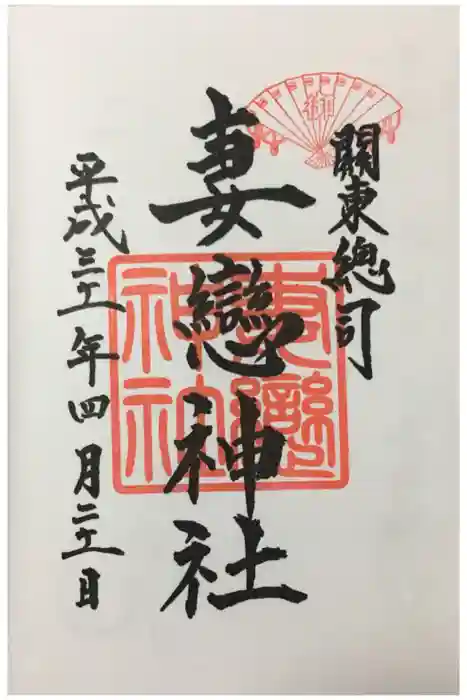 關東總司
妻戀神社
平成三十一年四月二十一日
御
妻戀
神社